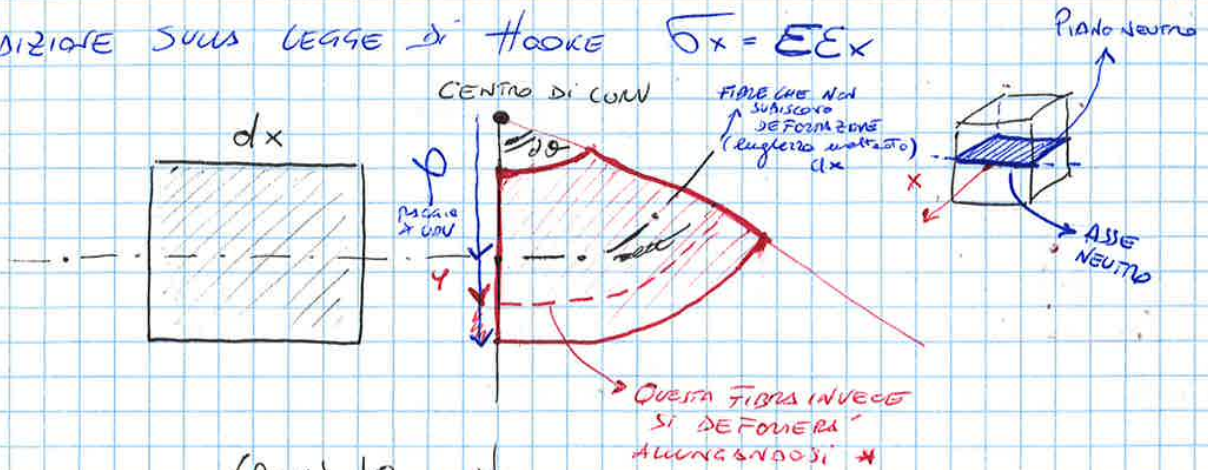 DIZIONE SULLA LEGGE DI HOOKE σx = Eεx
PIANO NEUTRO
CENTRO DI CURV
FIBRE CHE NON
SUBISCONO
DEFORMAZIONE
dx
dθ
dx
ρ
RAGGIO
DI CURV
y
x
ASSE
NEUTRO
QUESTA FIBRA INVECE
SI DEFORMERÀ
ALLUNGANDOSI *